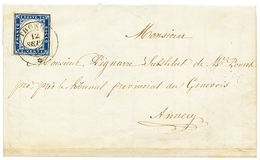 THONON
12
SEP
Monsieur
Monsieur Pignarre Substitut de Mr
près le tribunal provincial du Genevois
Annecy